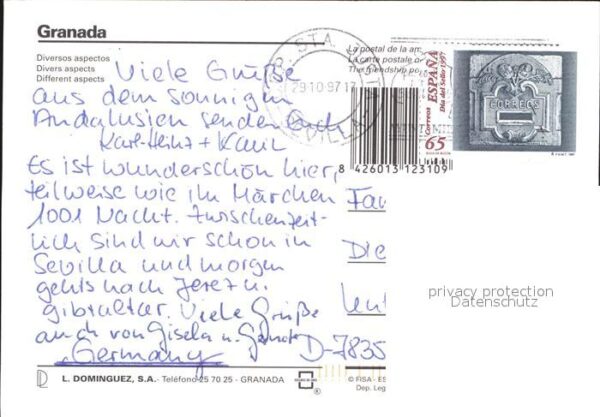 Granada
Diversos aspectos
Divers aspects
Different aspects
Viele Grüße
aus dem sonnigen
Andalusien senden Euch
Karl-Heinz +
Es ist wunderschön hier,
teilweise wie im Märchen
1001 Nacht. Zwischenzeit-
lich sind wir schon in
Sevilla und morgen
gehts nach Jerez u.
Gibraltar. Viele Grüße
auch von Gisela u.
Germany
La postal de la am
La carte postale
The friendship po
STA
29 10 97
SEVILLA
Correos
ESPAÑA
Día del Sello 1997
65
CORREOS
8 426013 123109
Fam
Die
Unt
D-7835
privacy protection
Datenschutz
L. DOMINGUEZ, S.A. - Teléfono 25 70 25 - GRANADA
© FISA - ES
Dep. Leg